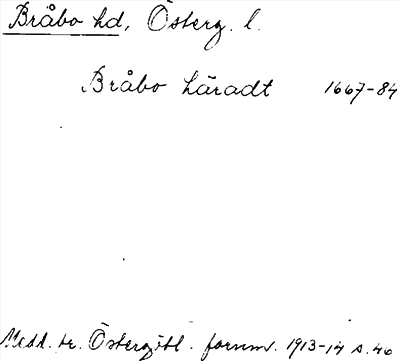 Bråbo hd, Österg. l.
Bråbo häradt 1667-84
Medd. fr. Östergötl. fornm. 1913-14 s. 46